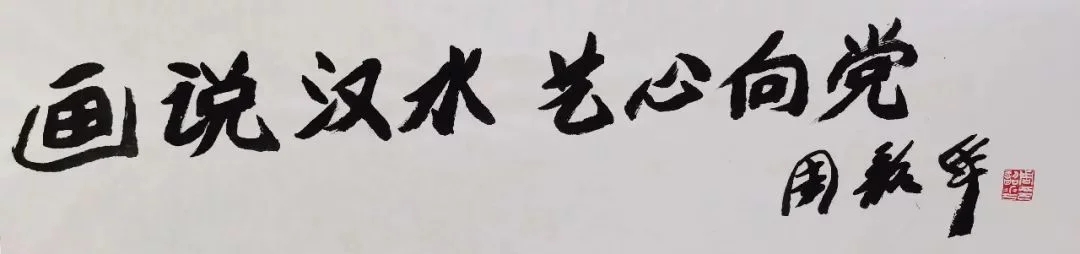 画说汉水 艺心向党
周韶华